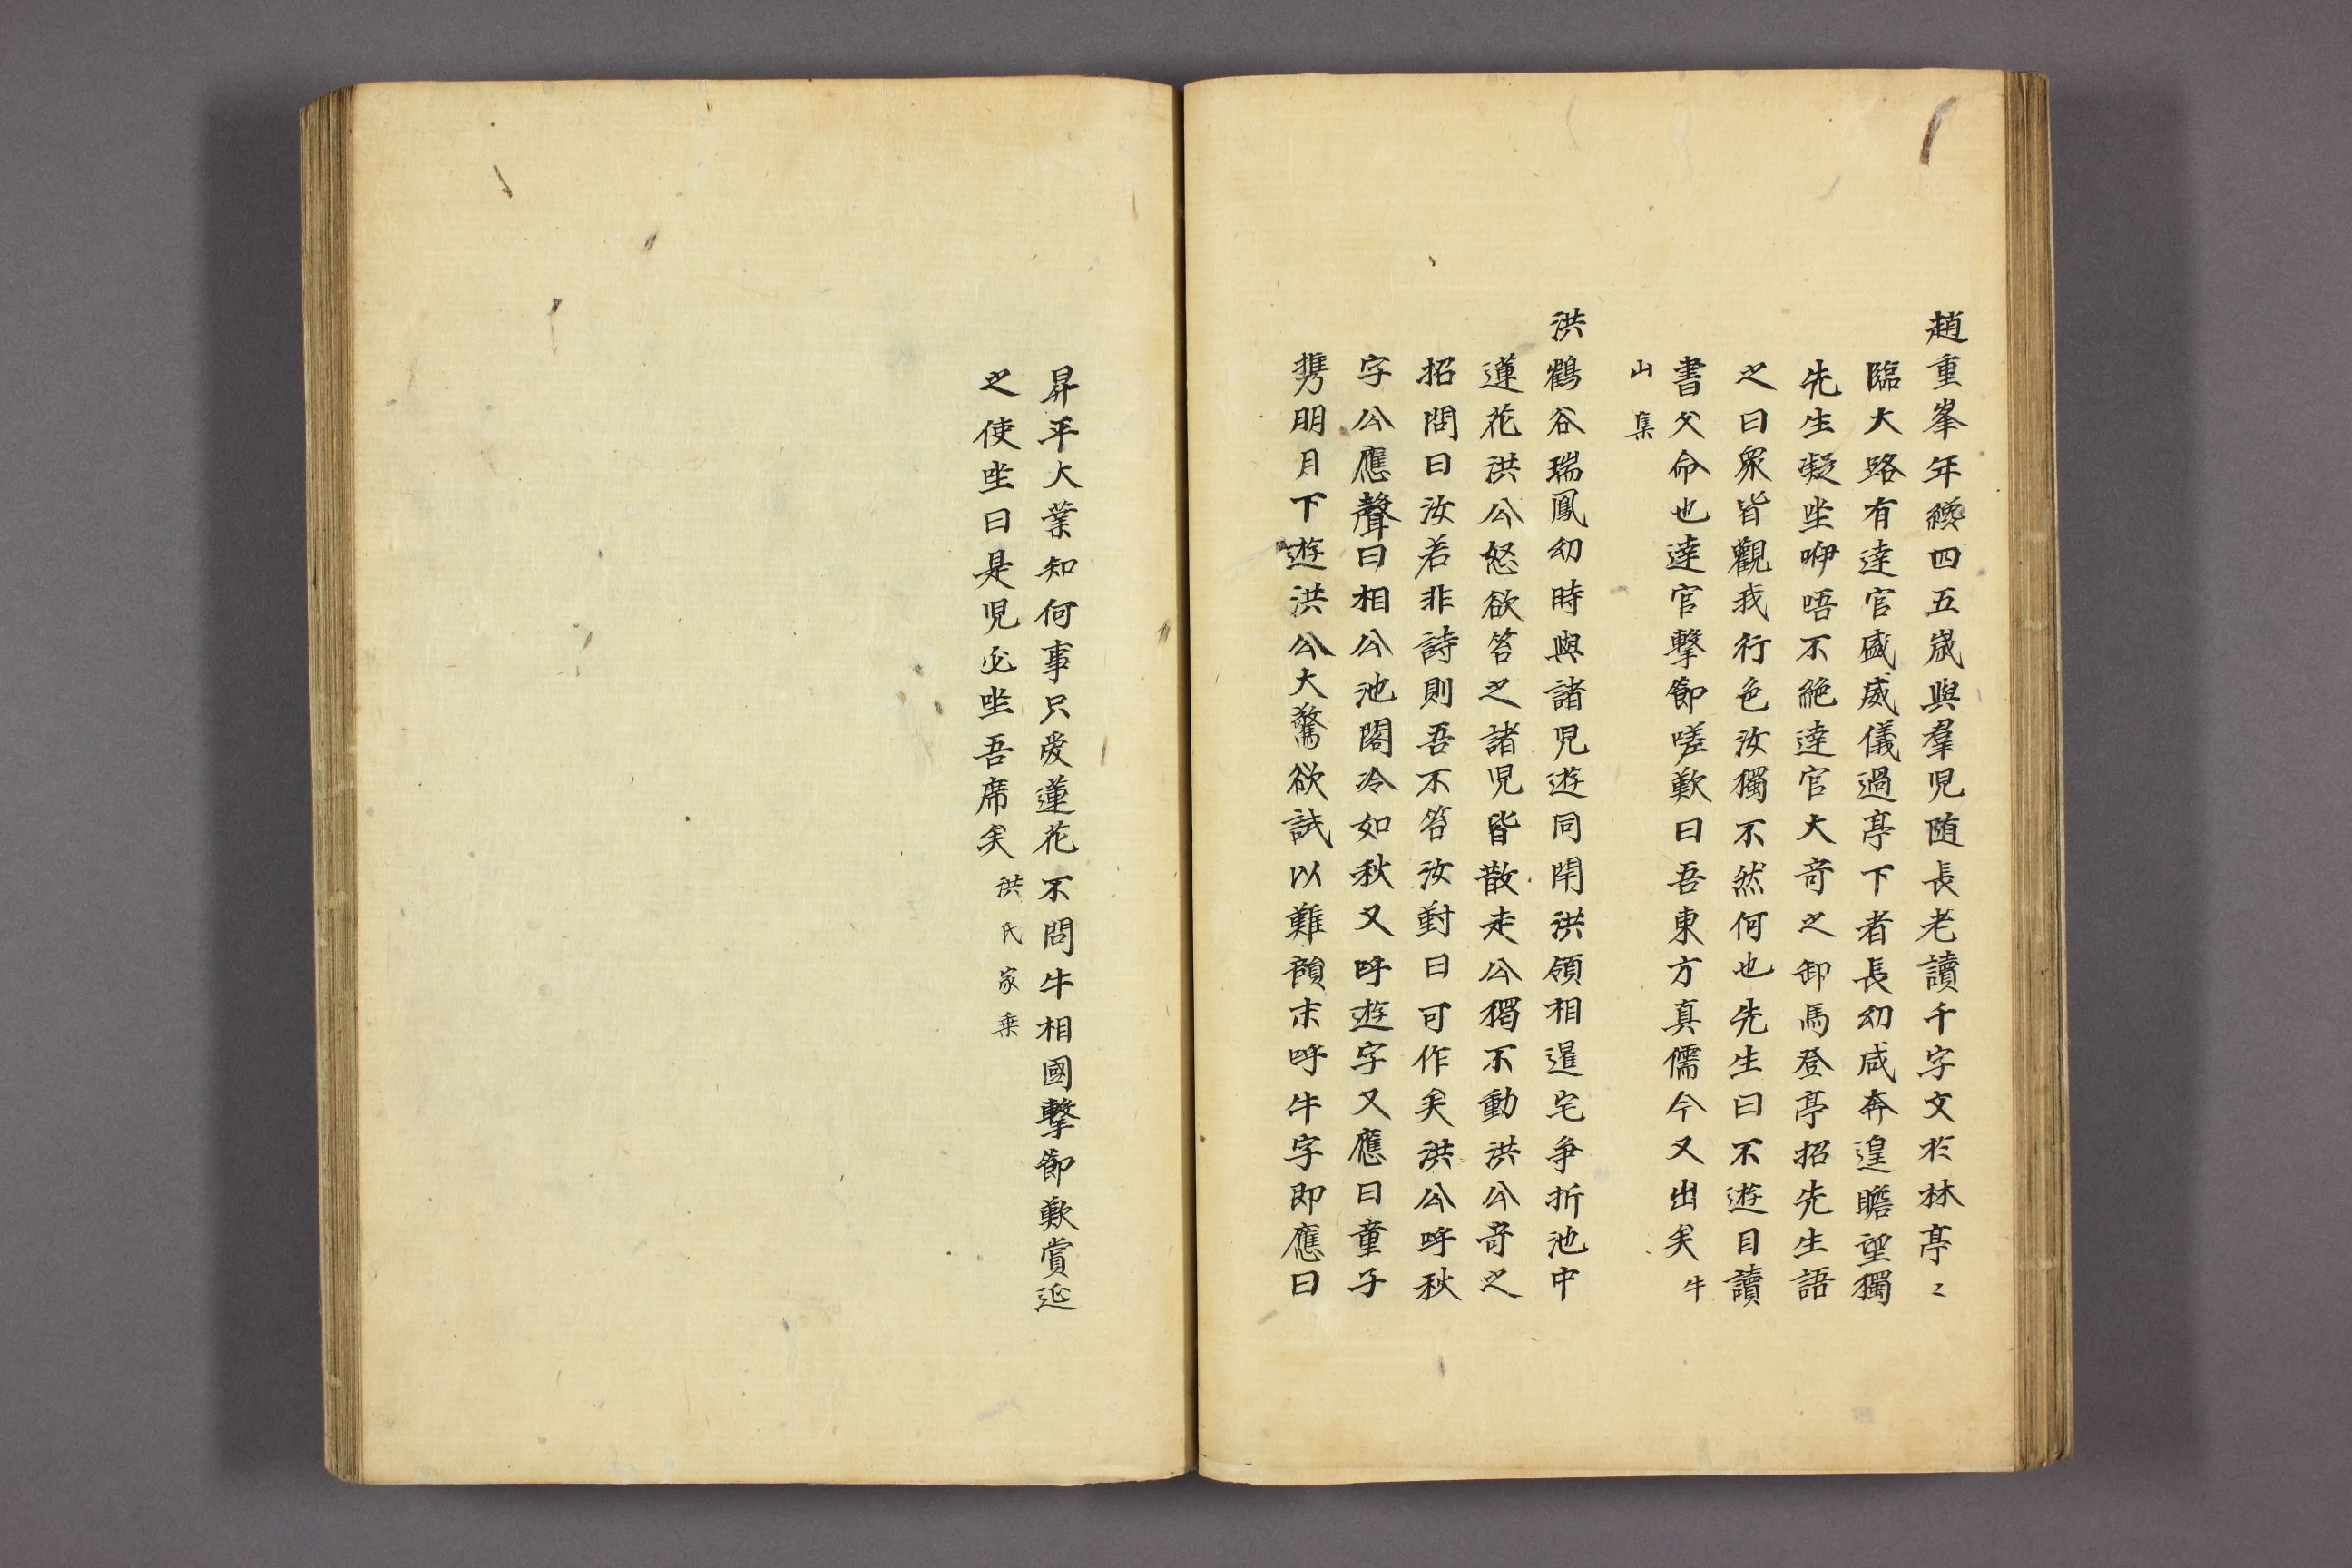 趙重峯年纔四五歲與羣兒随長老讀千字文於林亭々
臨大路有達官盛威儀過亭下者長幼咸奔遑瞻望獨
先生凝坐咿唔不絶達官大奇之卸馬登亭招先生語
之曰衆皆觀我行色汝獨不然何也先生曰不遊目讀
書父命也達官擊節嗟歎曰吾東方真儒今又出矣 牛
山集
洪鶴谷瑞鳳幼時與諸兒遊同閈洪領相暹宅爭折池中
蓮花洪公怒欲笞之諸兒皆散走公獨不動洪公奇之
招問曰汝若非詩則吾不笞汝對曰可作矣洪公呼秋
字公應聲曰相公池閣冷如秋又呼遊字又應曰童子
携朋月下遊洪公大驚欲試以難韻末呼牛字即應曰
昇平大業知何事只愛蓮花不問牛相國擊節歎賞延
之使坐曰是兒必坐吾席矣 洪氏家乘